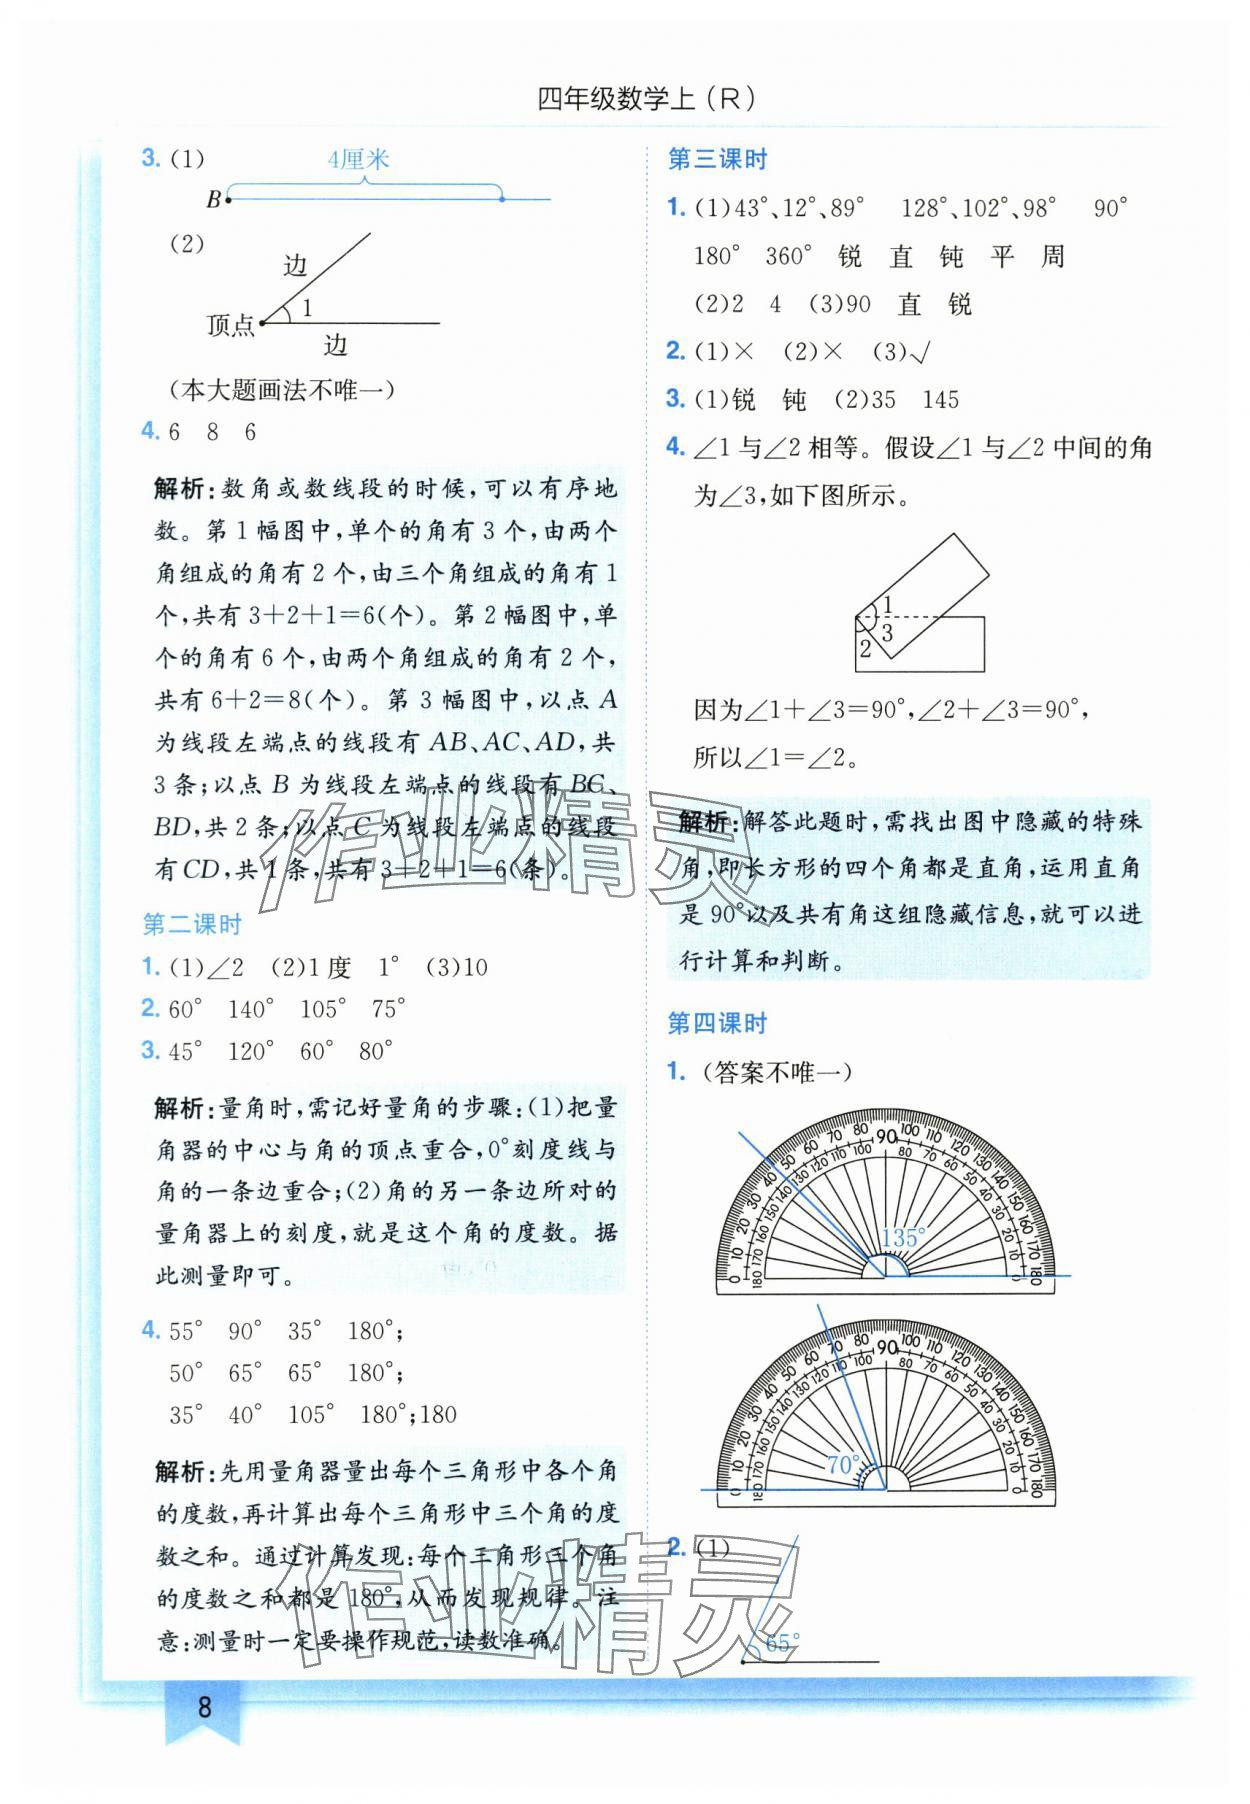 四年级数学上(R)
3. (1) 4厘米
B
(2)
边
1
顶点
边
(本大题画法不唯一)
4. 6 8 6
解析:数角或数线段的时候,可以有序地
数。第1幅图中,单个的角有3个,由两个
角组成的角有2个,由三个角组成的角有1
个,共有3+2+1=6(个)。第2幅图中,单
个的角有6个,由两个角组成的角有2个,
共有6+2=8(个)。第3幅图中,以点A
为线段左端点的线段有AB、AC、AD,共
3条;以点B为线段左端点的线段有BC、
BD,共2条;以点C为线段左端点的线段
有CD,共1条,共有3+2+1=6(条)。
第二课时
1. (1)∠2 (2)1度 1° (3)10
2. 60° 140° 105° 75°
3. 45° 120° 60° 80°
解析:量角时,需记好量角的步骤:(1)把量
角器的中心与角的顶点重合,0°刻度线与
角的一条边重合;(2)角的另一条边所对的
量角器上的刻度,就是这个角的度数。据
此测量即可。
4. 55° 90° 35° 180°;
50° 65° 65° 180°;
35° 40° 105° 180°;180
解析:先用量角器量出每个三角形中各个角
的度数,再计算出每个三角形中三个角的度
数之和。通过计算发现:每个三角形三个角
的度数之和都是180°,从而发现规律。注
意:测量时一定要操作规范,读数准确。
8
第三课时
1. (1)43°、12°、89° 128°、102°、98° 90°
180° 360° 锐 直 钝 平 周
(2)2 4 (3)90 直 锐
2. (1)× (2)× (3)√
3. (1)锐 钝 (2)35 145
4. ∠1与∠2相等。假设∠1与∠2中间的角
为∠3,如下图所示。
1
3
2
因为∠1+∠3=90°,∠2+∠3=90°,
所以∠1=∠2。
解析:解答此题时,需找出图中隐藏的特殊
角,即长方形的四个角都是直角,运用直角
是90°以及共有角这组隐藏信息,就可以进
行计算和判断。
第四课时
1. (答案不唯一)
0 10 20 30 40 50 60 70 80 90 100 110 120 130 140 150 160 170 180
180 170 160 150 140 130 120 110 100 80 70 60 50 40 30 20 10 0
135°
0 10 20 30 40 50 60 70 80 90 100 110 120 130 140 150 160 170 180
180 170 160 150 140 130 120 110 100 80 70 60 50 40 30 20 10 0
70°
2. (1)
65°
作业精灵
作业精灵